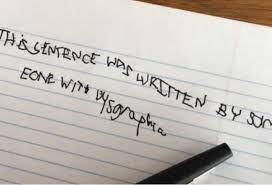 THIS SENTENCE WAS WRITTEN BY SOM
EONE WITH DYSgraphia